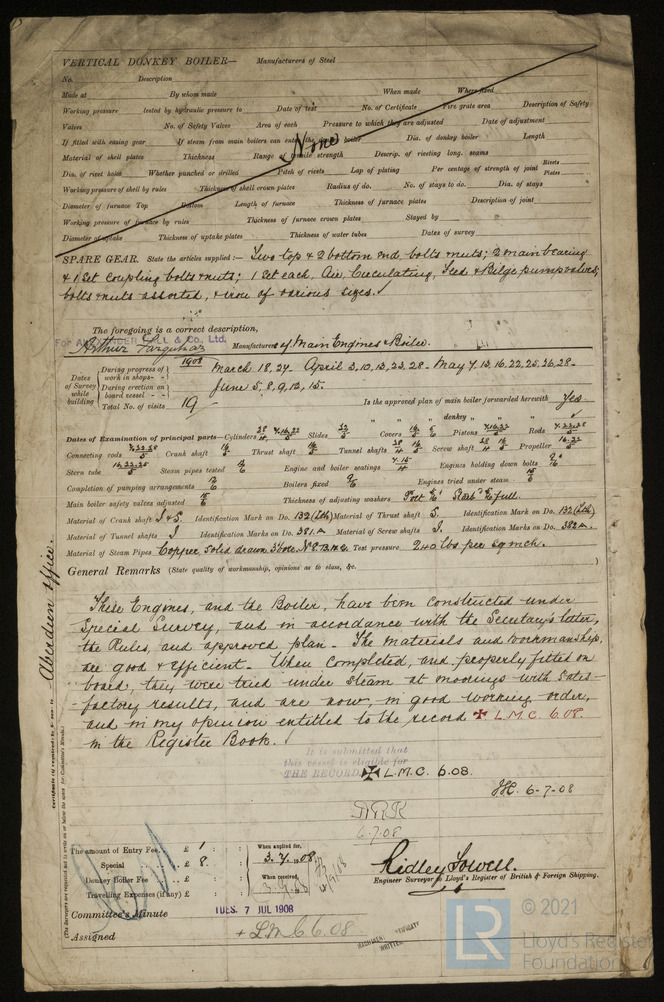 VERTICAL DONKEY BOILER— Manufacturers of Steel
No. Description
Made at By whom made When made Where fixed
Working pressure tested by hydraulic pressure to Date of test No. of Certificate Fire grate area Description of Safety
Valves No. of Safety Valves Area of each Pressure to which they are adjusted Date of adjustment
If fitted with easing gear If steam from main boilers can enter the donkey boiler Dia. of donkey boiler Length
None
Material of shell plates Thickness Range of tensile strength Descrip. of riveting long. seams
Dia. of rivet holes Whether punched or drilled Pitch of rivets Lap of plating Per centage of strength of joint Rivets Plates
Working pressure of shell by rules Thickness of shell crown plates Radius of do. No. of stays to do. Dia. of stays
Diameter of furnace Top Bottom Length of furnace Thickness of furnace plates Description of joint
Working pressure of furnace by rules Thickness of furnace crown plates Stayed by
Diameter of uptake Thickness of uptake plates Thickness of water tubes Dates of survey
SPARE GEAR. State the articles supplied:— Two top & 2 bottom end bolts & nuts; 2 main bearing
& 1 set coupling bolts & nuts; 1 set each, Air Circulating, Feed & Bilge pump valves;
bolts & nuts assorted, & iron of various sizes. ✓
The foregoing is a correct description,
For ALEXANDER HALL & Co., Ltd.
Arthur Farquhar Manufacturers of Main Engines & Boiler.
Dates of Survey while building
During progress of work in shops - - 1908 March 18, 27. April 3, 10, 13, 23, 28. May 7, 13, 16, 22, 25, 26, 28.
During erection on board vessel - - June 5, 8, 9, 12, 15.
Total No. of visits 19 Is the approved plan of main boiler forwarded herewith Yes
" " " donkey " " " ✓
Dates of Examination of principal parts—Cylinders Slides Covers Pistons Rods
Connecting rods Crank shaft Thrust shaft Tunnel shafts Screw shaft Propeller
Stern tube Steam pipes tested Engine and boiler seatings Engines holding down bolts
Completion of pumping arrangements Boilers fixed Engines tried under steam
Main boiler safety valves adjusted Thickness of adjusting washers
Material of Crank shaft I & S. Identification Mark on Do. 132 (Lth) Material of Thrust shaft S. Identification Mark on Do. 132 (Lth)
Material of Tunnel shafts I Identification Marks on Do. 381A Material of Screw shafts I. Identification Marks on Do. 382A.
Material of Steam Pipes Copper solid drawn Test pressure 240 lbs per sq inch.
General Remarks (State quality of workmanship, opinions as to class, &c.
These Engines, and the Boiler, have been constructed under
Special Survey, and in accordance with the Secretary's letter,
the Rules, and approved plan - The materials and workmanship,
are good & efficient - When completed, and properly fitted on
board, they were tried under steam at moorings with satis-
factory results, and are now, in good working order,
and in my opinion entitled to the record ✠ L.M.C. 6.08.
in the Register Book.
It is submitted that
this vessel is eligible for
THE RECORD ✠ L.M.C. 6.08.
6-7-08
6.7.08
The amount of Entry Fee.. £ 1 : When applied for,
Special £ 8. : 3.7.1908
Donkey Boiler Fee £ : When received,
Travelling Expenses (if any) £ :
Ridley Sowell.
Engineer Surveyor to Lloyd's Register of British & Foreign Shipping.
Committee's Minute TUES. 7 JUL 1908
Assigned + LMC 6.08
MACHINERY CERTIFICATE WRITTEN
Aberdeen Office.
© 2021
LR
Lloyd's Register
Foundation